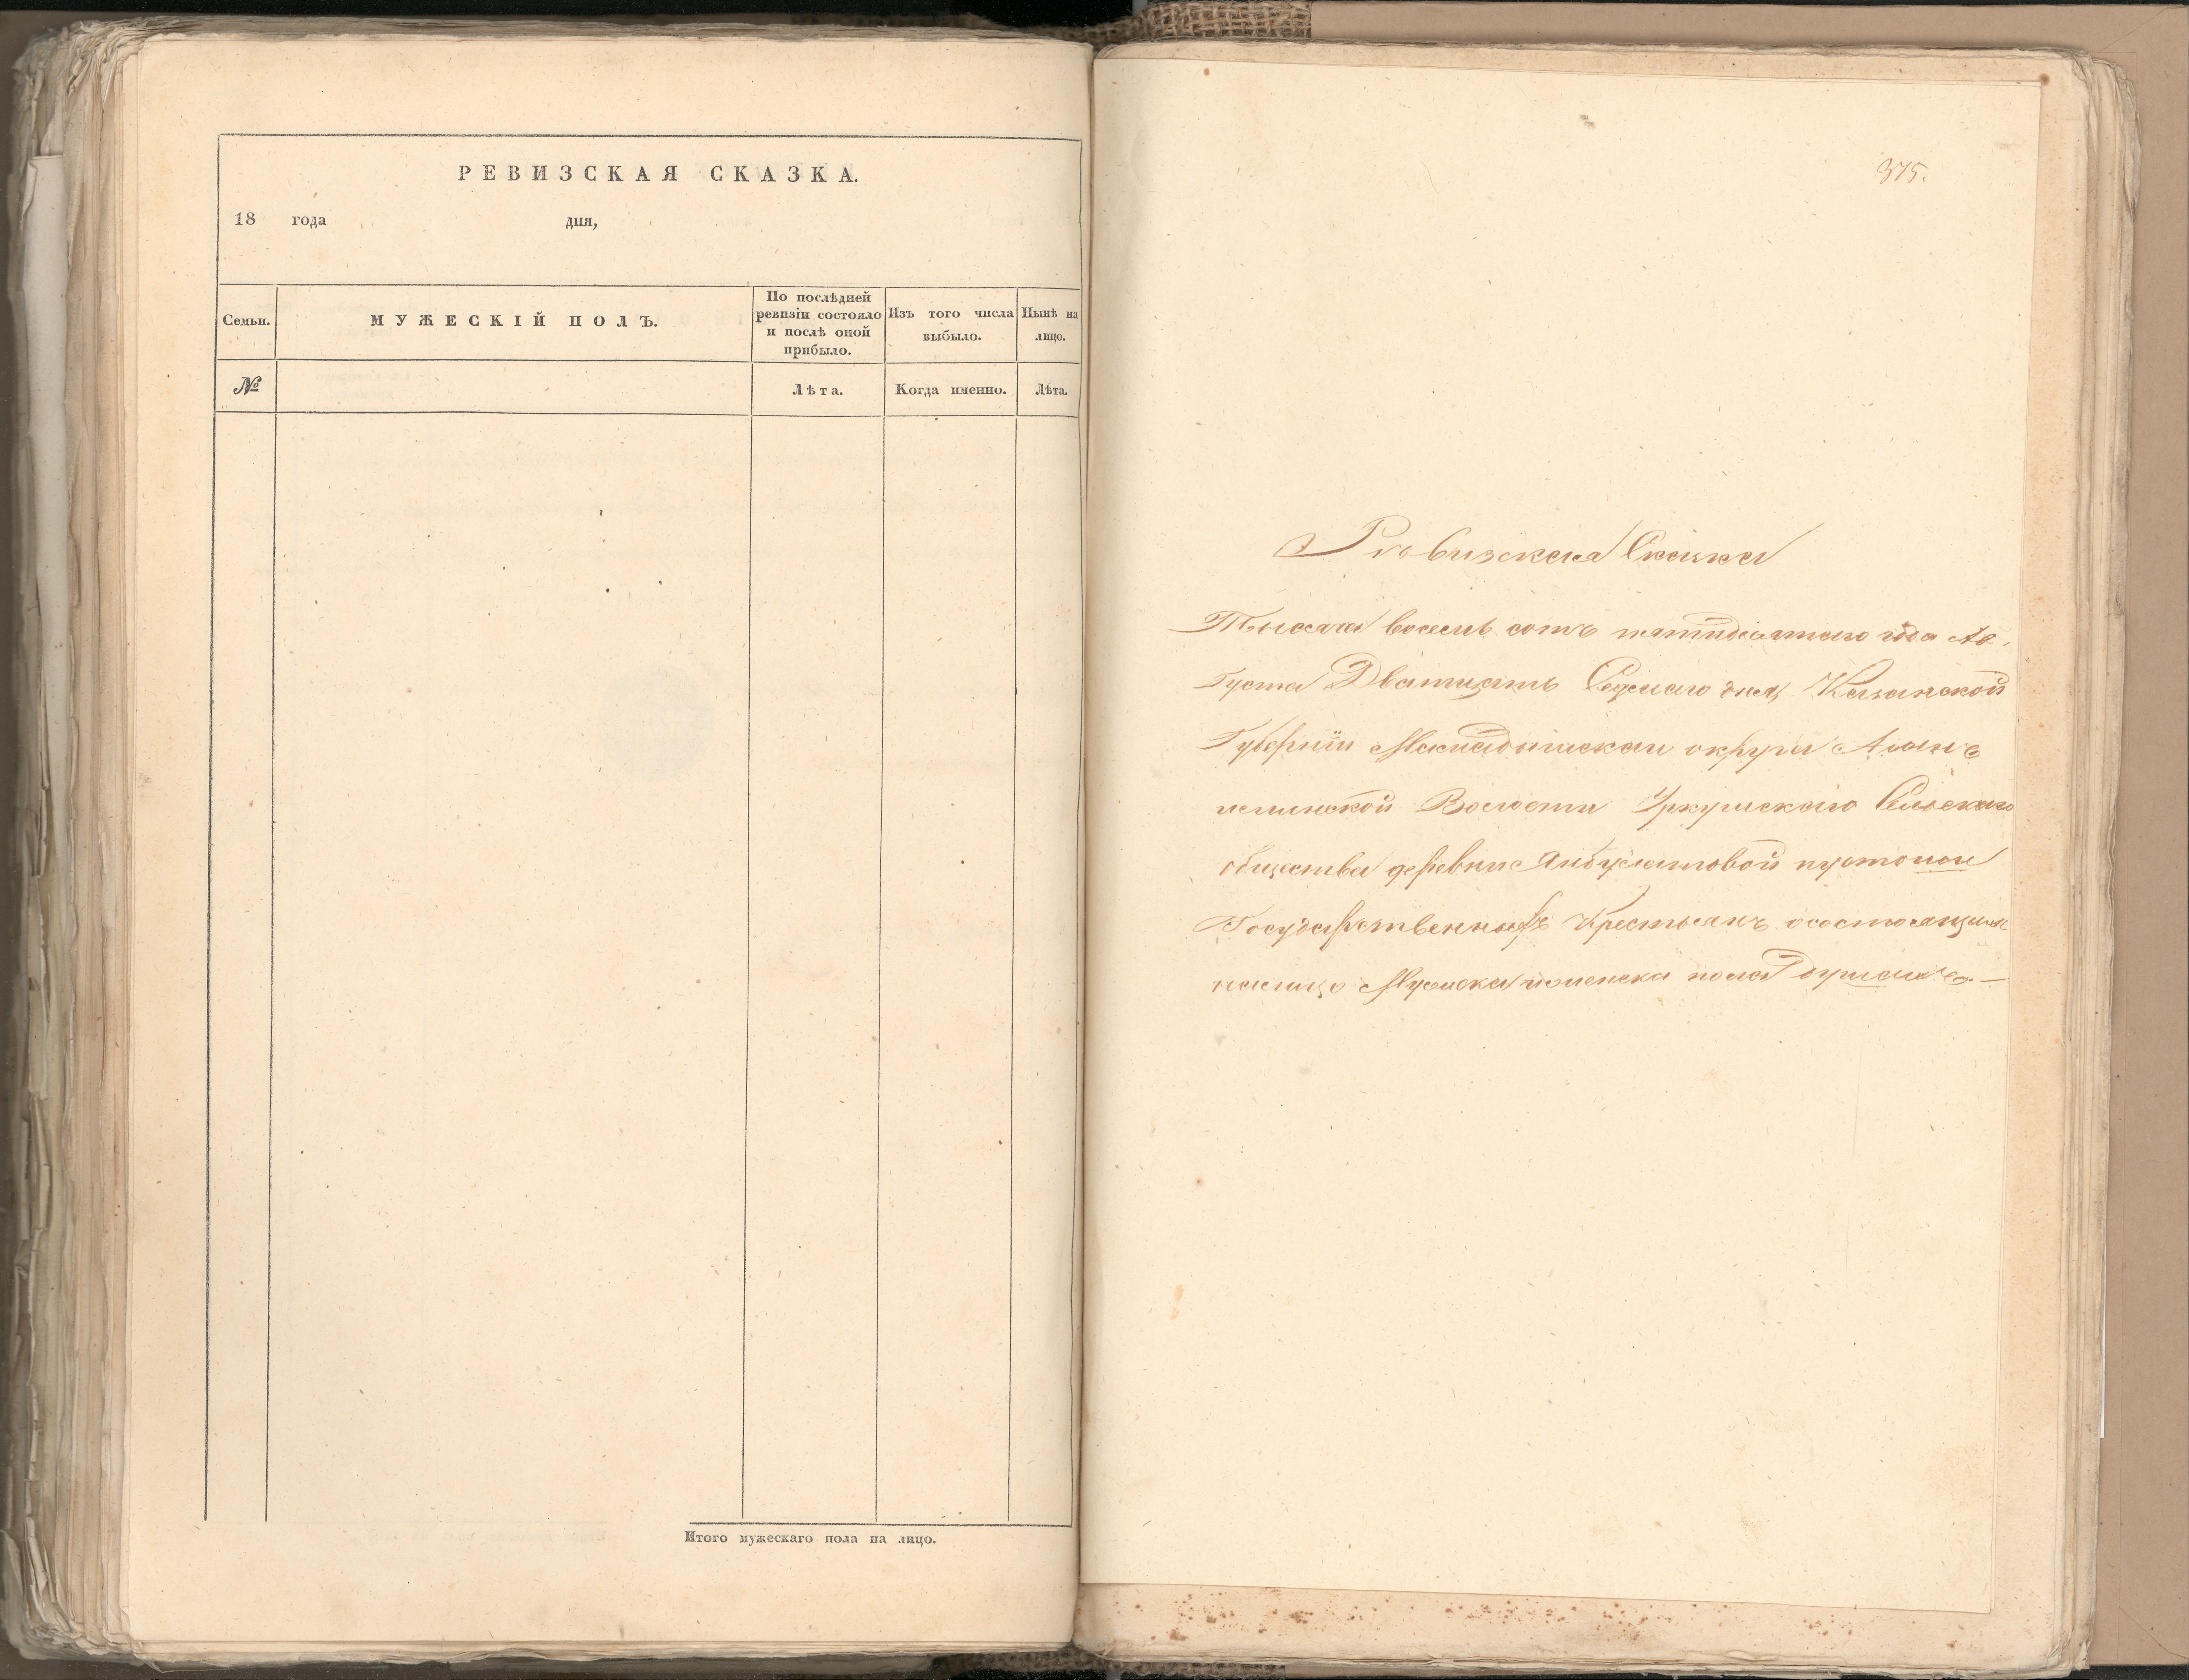 РЕВИЗСКАЯ СКАЗКА.
18 года дня,
Семьи.
МУЖЕСКІЙ ПОЛЪ.
По послѣдней
ревизіи состояло
и послѣ оной
прибыло.
Изъ того числа
выбыло.
Нынѣ на
лицо.
№
Лѣта.
Когда именно.
Лѣта.
Итого мужескаго пола на лицо.
375.
Ревизская Сказка
Тысяча восемь сотъ пятидесятаго года Ав-
густа Дватцать Седмаго дня Казанской
Губерніи Мамадышскаи округа
Волости Уркушскаго Сельскаго
общества деревни Янбулатовой
Государственныхъ Крестьянъ осостоящихъ
налицо Мужска женска пола душахъ. —